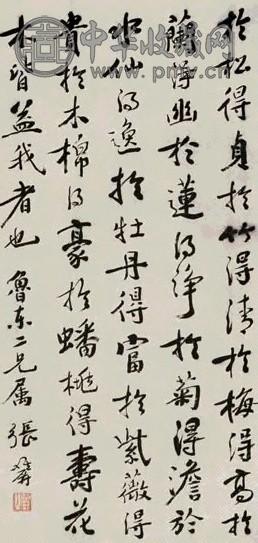 於松得貞於竹得清於梅得高於
蘭得幽於蓮得淨於菊得澹於
水仙得逸於牡丹得富於紫薇得
貴於木棉得豪於蟠桃得壽花
木皆益我者也 魯東二兄屬 張
中华收藏网
www.pmv.cn